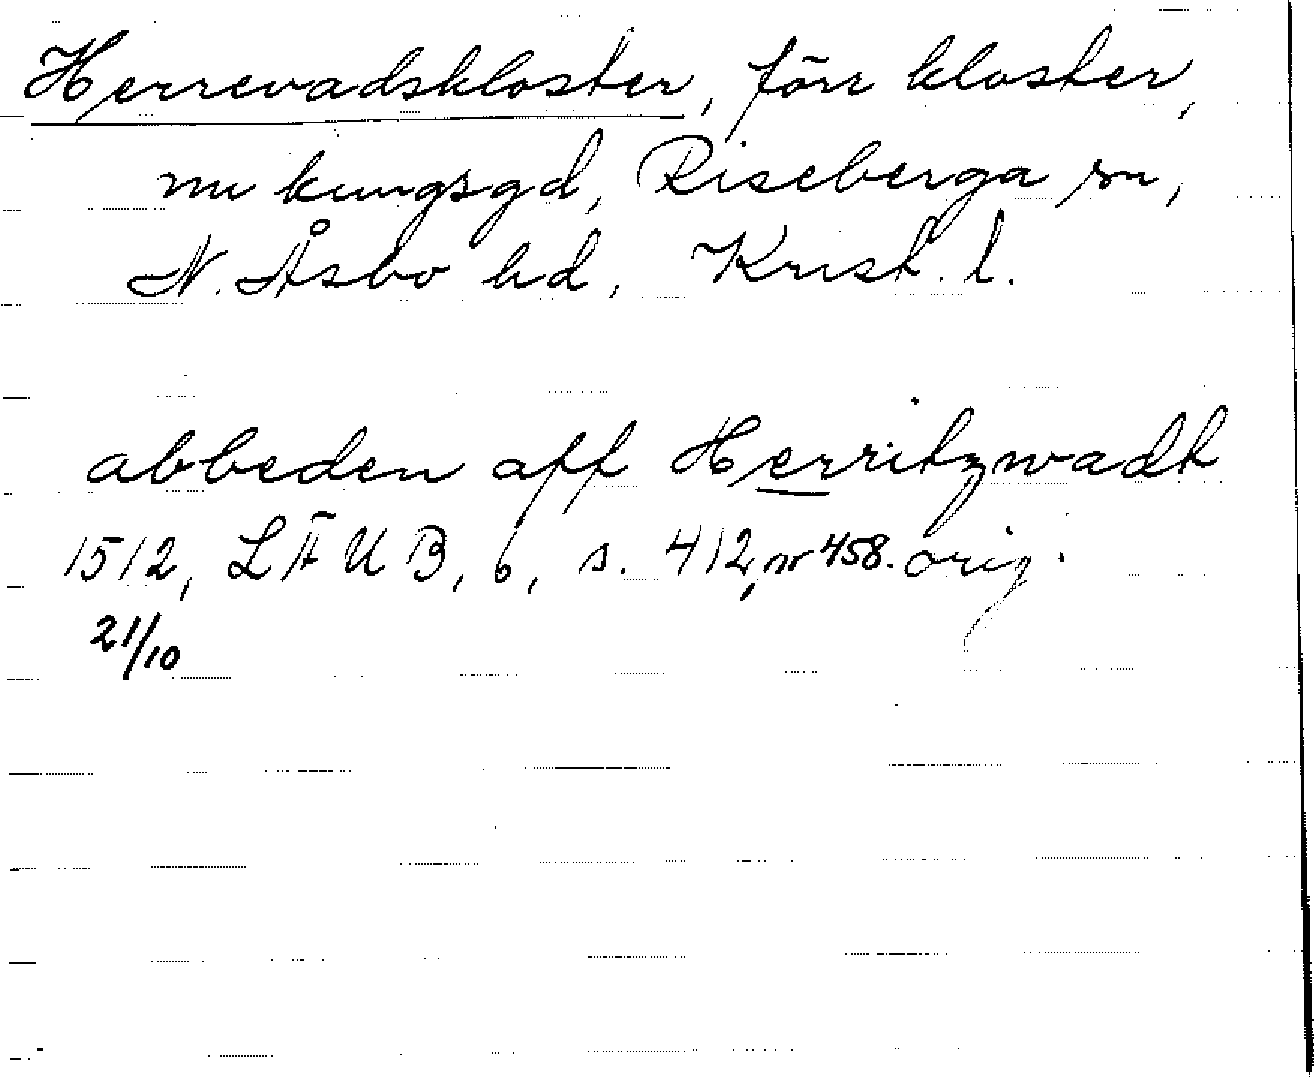 Herrevadskloster, förr kloster,
nu kungsgd, Riseberga sn,
N. Åsbo hd, Krist. l.
abbeden aff Herritzwadt
1512, LÄUB, 6, s. 412, nr 458. orig.
21/10